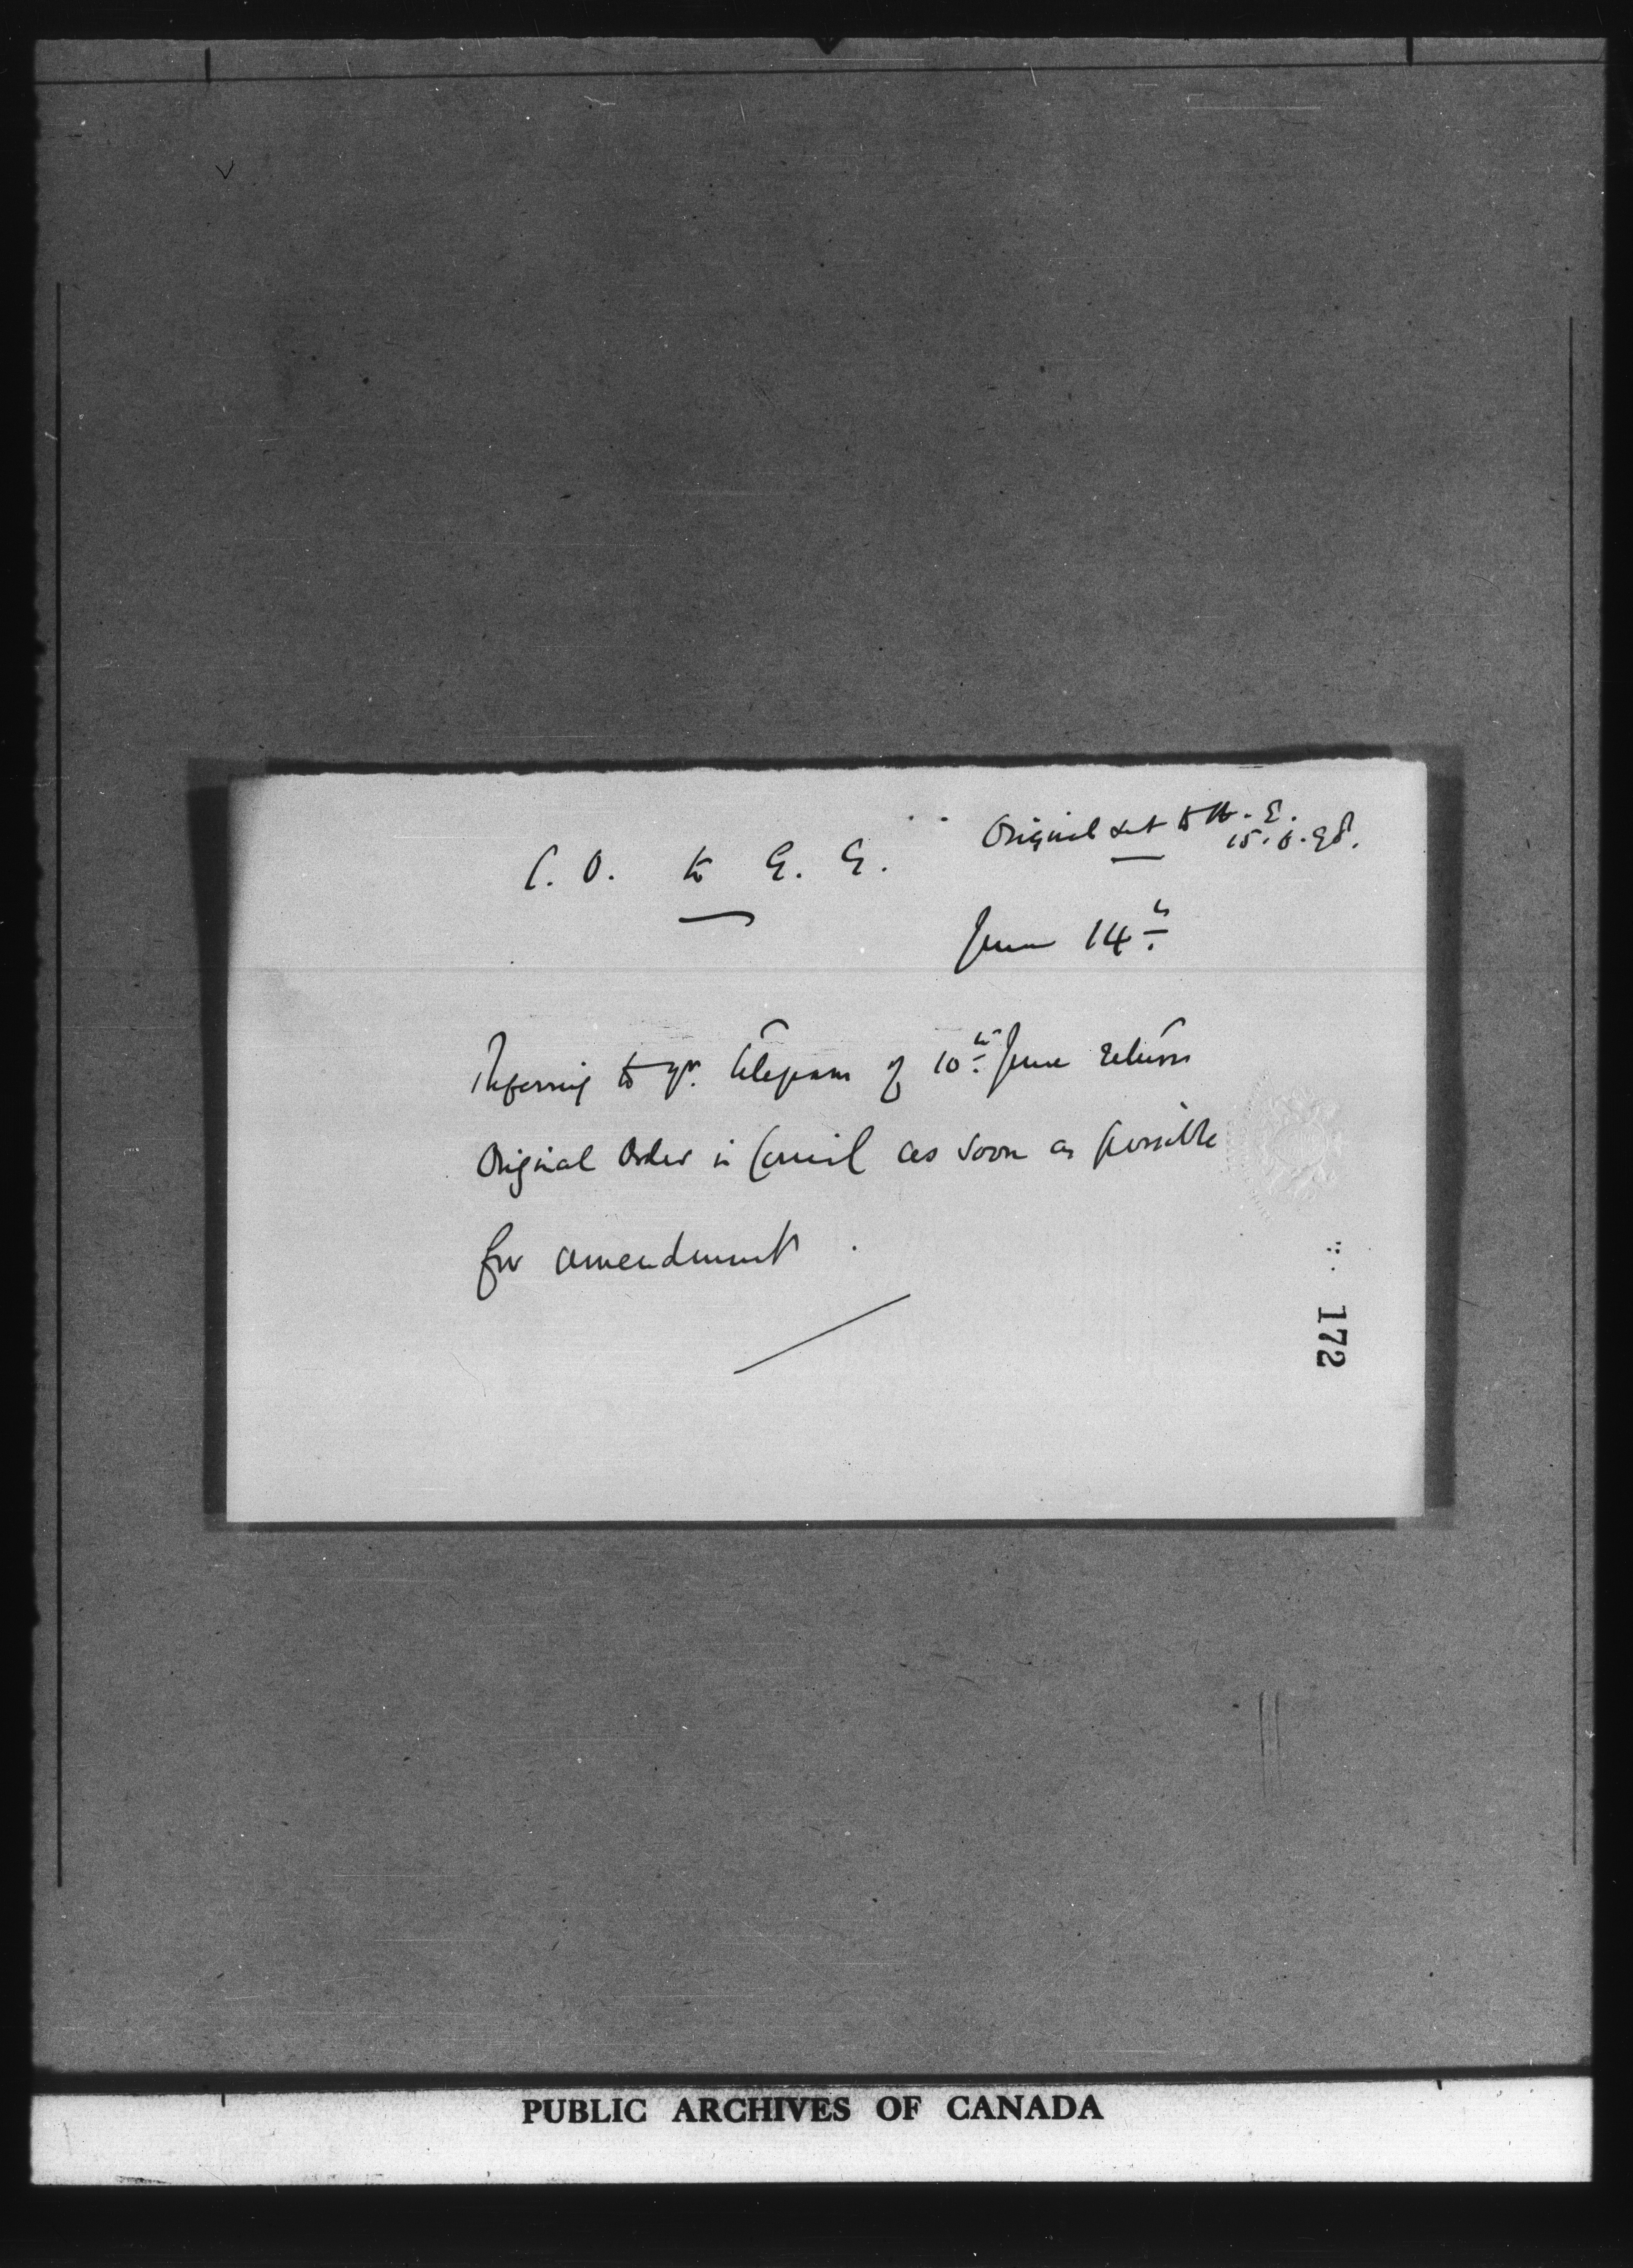 Original sent to H. E.
15.6.98.
C. O. to G. G.
June 14th.
Referring to yr. telegram of 10th June return
Original Order in Council as soon as possible
for amendment.
172
PUBLIC ARCHIVES OF CANADA